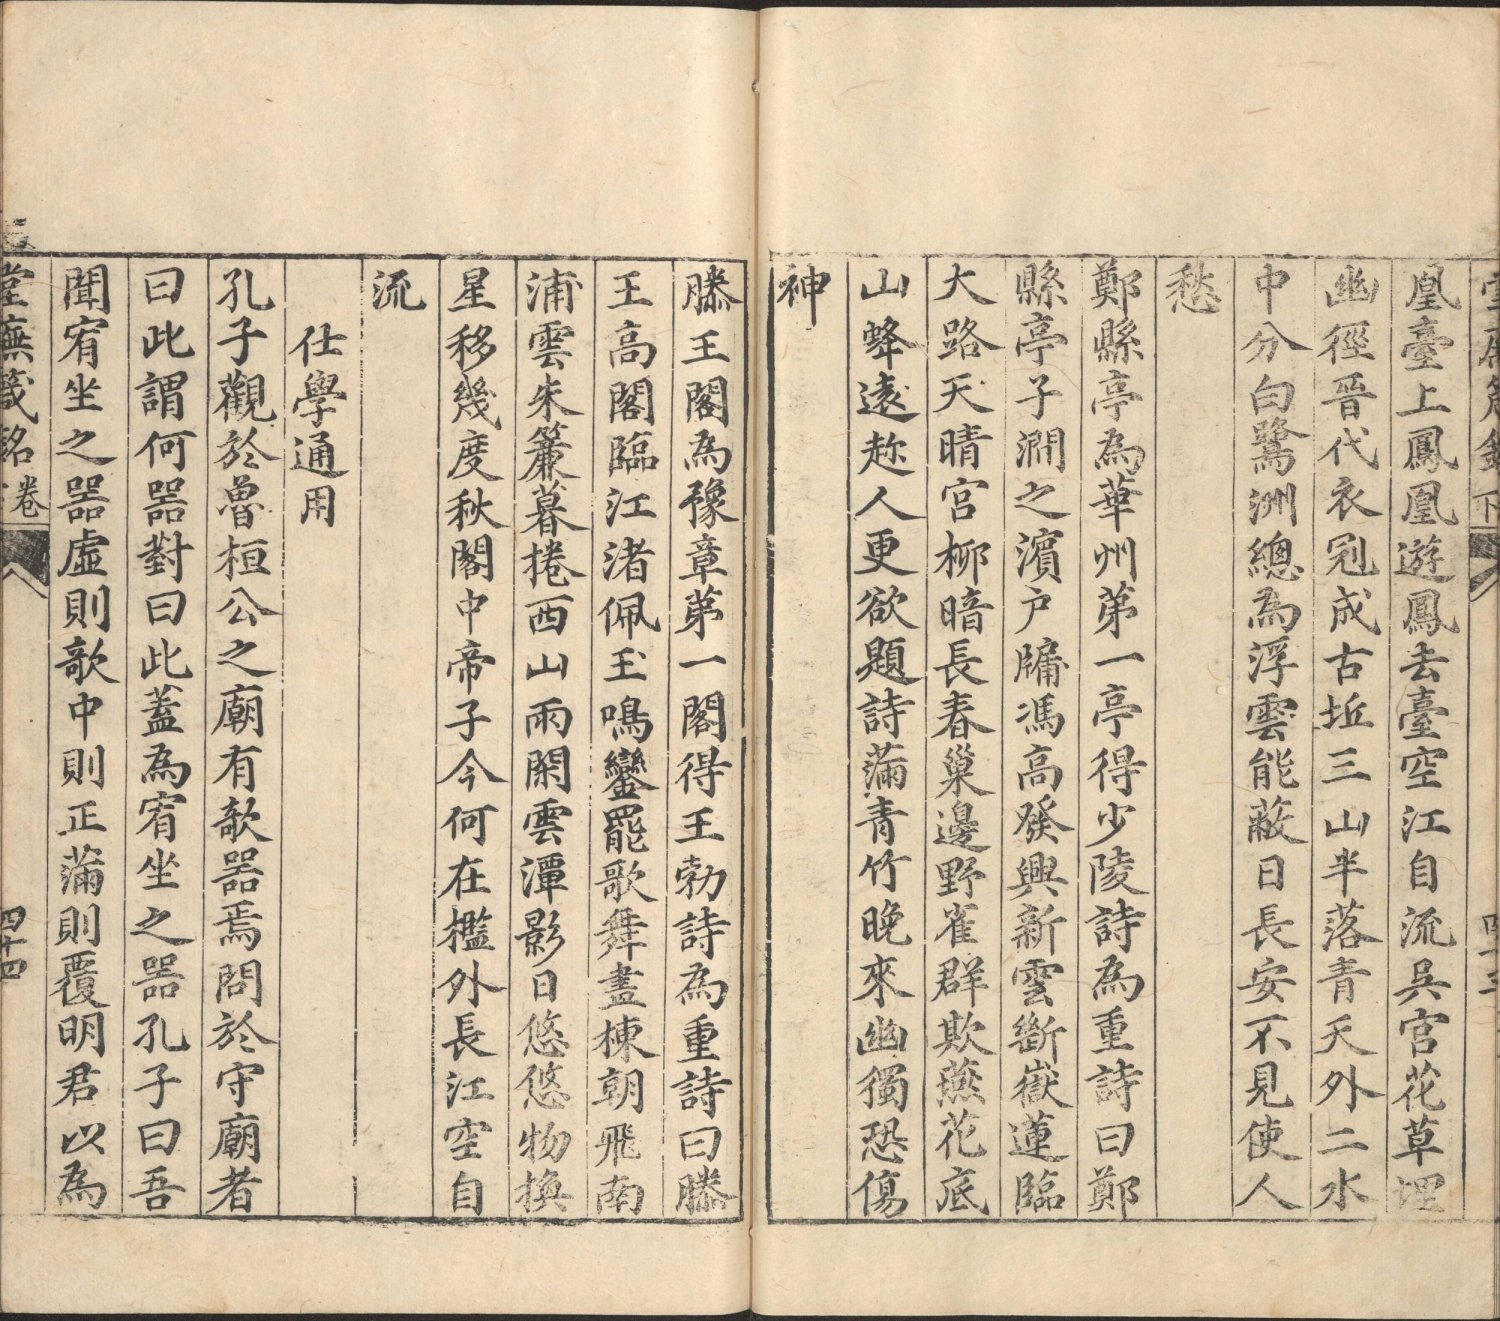 凰臺上鳳凰遊鳳去臺空江自流吳宮花草埋
幽徑晉代衣冠成古丘三山半落青天外二水
中分白鷺洲總為浮雲能蔽日長安不見使人
愁
鄭縣亭為華州第一亭得少陵詩為重詩曰鄭
縣亭子澗之濱户牖馮高發興新雲斷嶽蓮臨
大路天晴宮柳暗長春巢邊野雀群欺燕花底
山蜂遠趂人更欲題詩滿青竹晚來幽獨恐傷
神
滕王閣為豫章第一閣得王勃詩為重詩曰滕
王高閣臨江渚佩玉鳴鑾罷歌舞畫棟朝飛南
浦雲朱簾暮捲西山雨閑雲潭影日悠悠物換
星移幾度秋閣中帝子今何在檻外長江空自
流
仕學通用
孔子觀於魯桓公之廟有欹器焉問於守廟者
曰此謂何器對曰此蓋為宥坐之器孔子曰吾
聞宥坐之器虛則欹中則正滿則覆明君以為
四十四